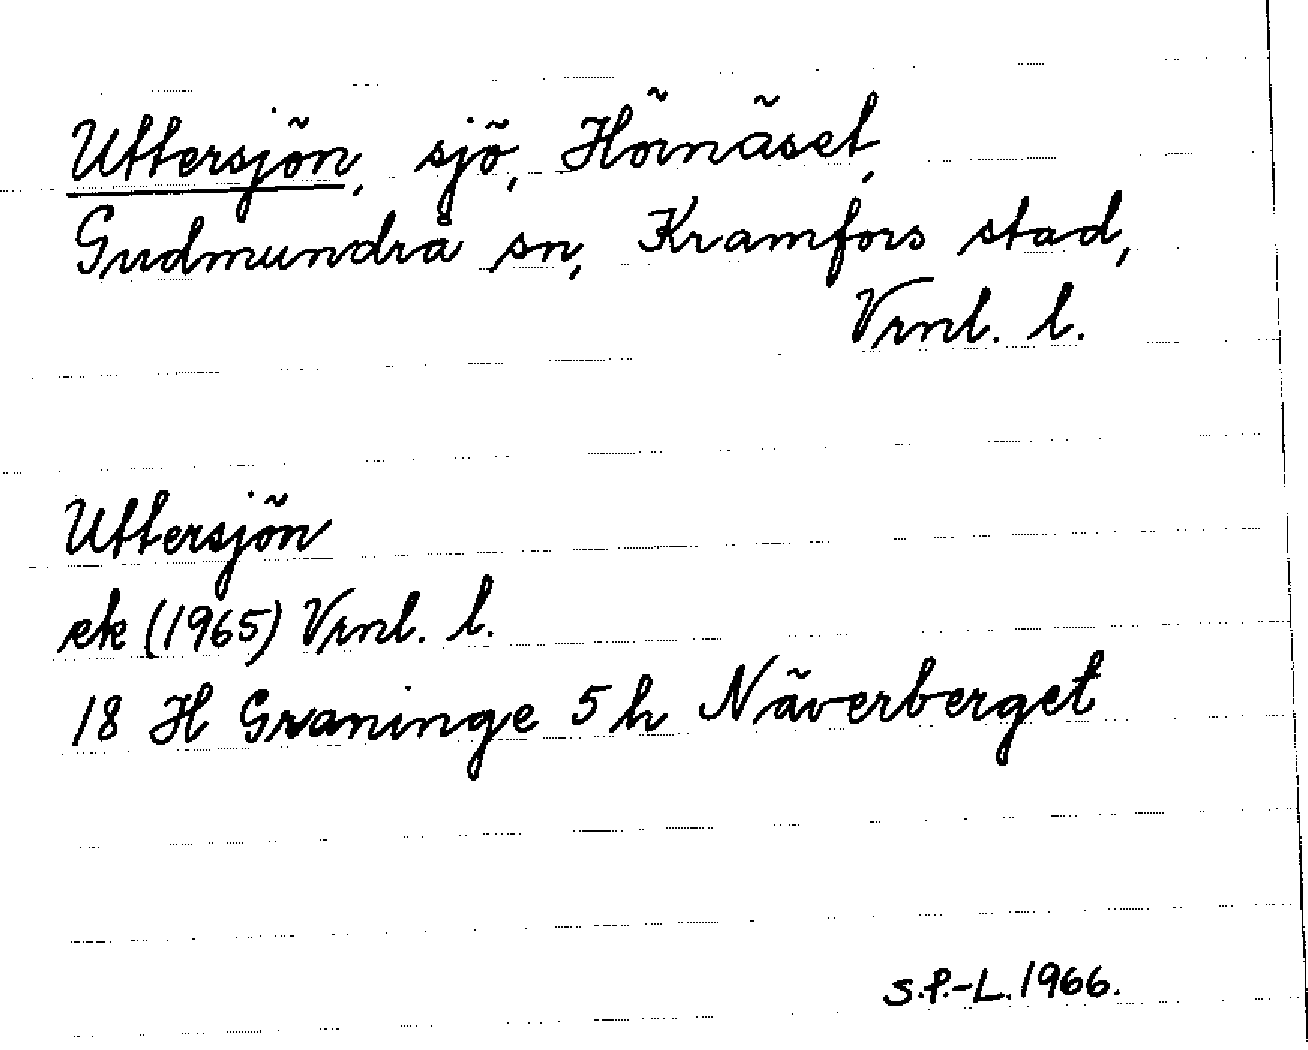 Uttersjön, sjö, Hörnäset,
Gudmundrå sn, Kramfors stad,
Vrnl. l.
Uttersjön
ek (1965) Vrnl. l.
18 H Graninge 5 h Näverberget
S.P.-L. 1966.